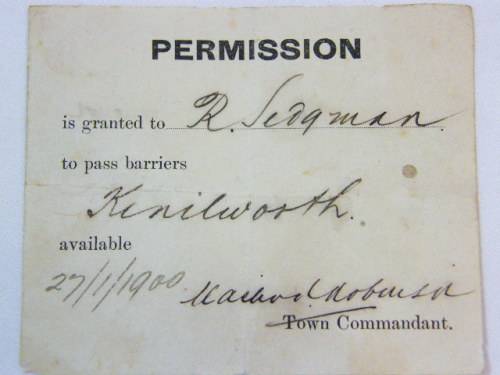 PERMISSION
is granted to R. Sedgman.
to pass barriers
Kenilworth.
available
27/1/1900
Macleod. Robinson
Town Commandant.